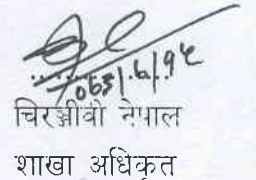 २०६३।६।१५
चिरञ्जीवी नेपाल
शाखा अधिकृत